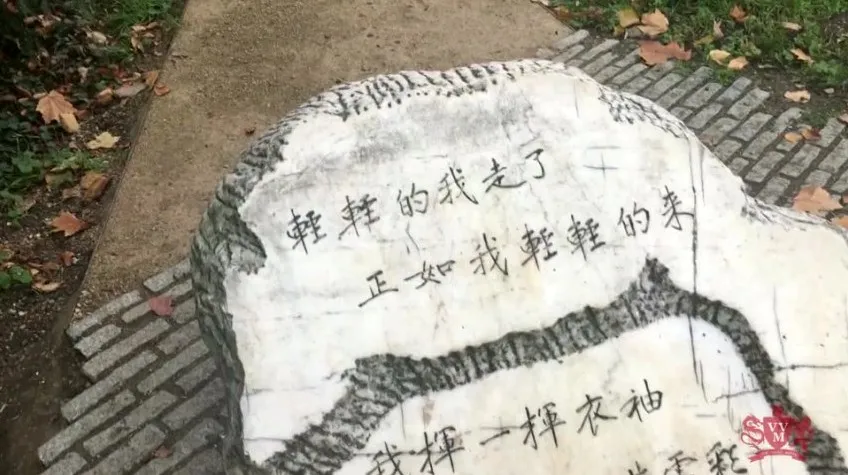 輕輕的我走了
正如我輕輕的来
我揮一揮衣袖
雲彩